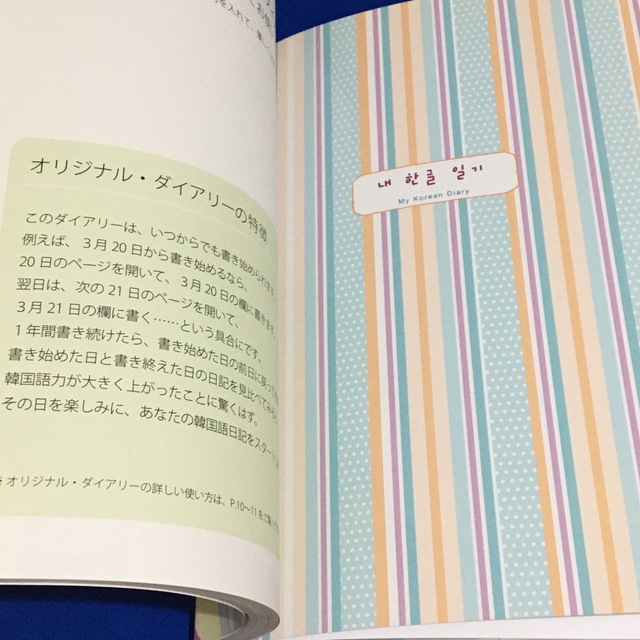 オリジナル・ダイアリーの特徴
このダイアリーは、いつからでも書き始められます。
例えば、3月20日から書き始めるなら、
20日のページを開いて、3月20日の欄に書きます。
翌日は、次の21日のページを開いて、
3月21日の欄に書く……という具合にです。
1年間書き続けたら、書き始めた日の前日に戻って
書き始めた日と書き終えた日の日記を見比べてみると、
韓国語力が大きく上がったことに驚くはず。
その日を楽しみに、あなたの韓国語日記をスタート
オリジナル・ダイアリーの詳しい使い方は、P.10〜11をご覧
내 한글 일기
My Korean Diary